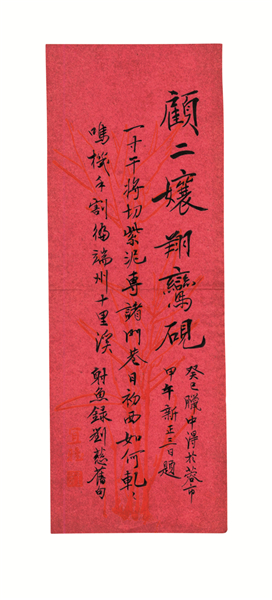 顧二孃翔鸞硯
癸巳臘中得於蓉市
甲午新正三日題
一寸干將切紫泥專諸門巷日初西如何軋軋
鳴機手割徧端州十里溪
射魚錄劉慈舊句